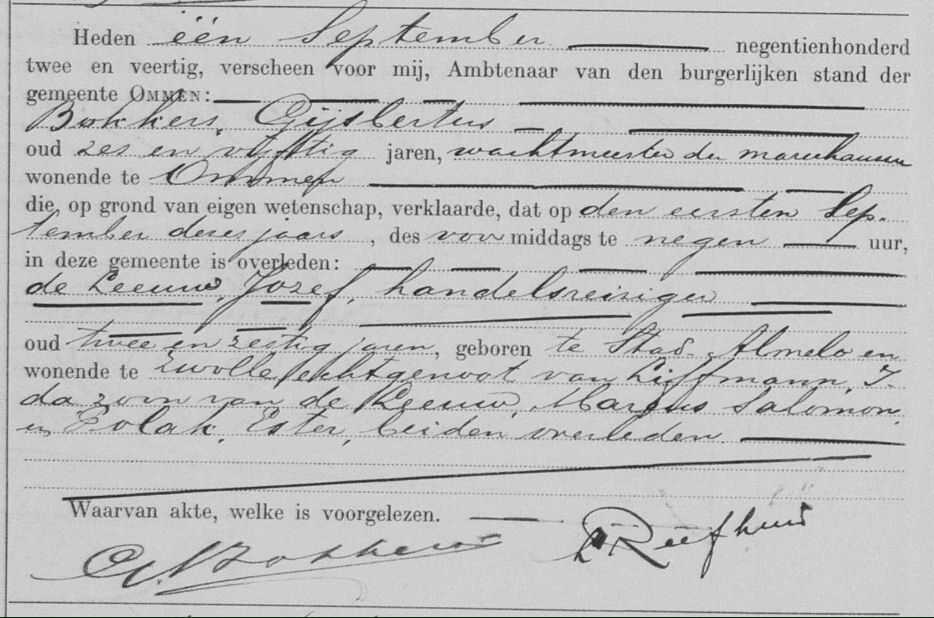 Heden één September negentienhonderd
twee en veertig, verscheen voor mij, Ambtenaar van den burgerlijken stand der
gemeente OMMEN:
Bokkers, Gijsbertus
oud zes en vijftig jaren, wachtmeester der marechaussee
wonende te Ommen
die, op grond van eigen wetenschap, verklaarde, dat op den eersten Sep-
tember dezes jaars, des voor middags te negen uur,
in deze gemeente is overleden:
de Leeuw, Jozef, handelsreiziger
oud twee en zestig jaren, geboren te Stad Almelo en
wonende te Zwolle, echtgenoot van Liffmann, I-
da zoon van de Leeuw, Marcus Salomon
en Polak, Ester, beiden overleden
Waarvan akte, welke is voorgelezen.
G. Bokkers Reefhuis